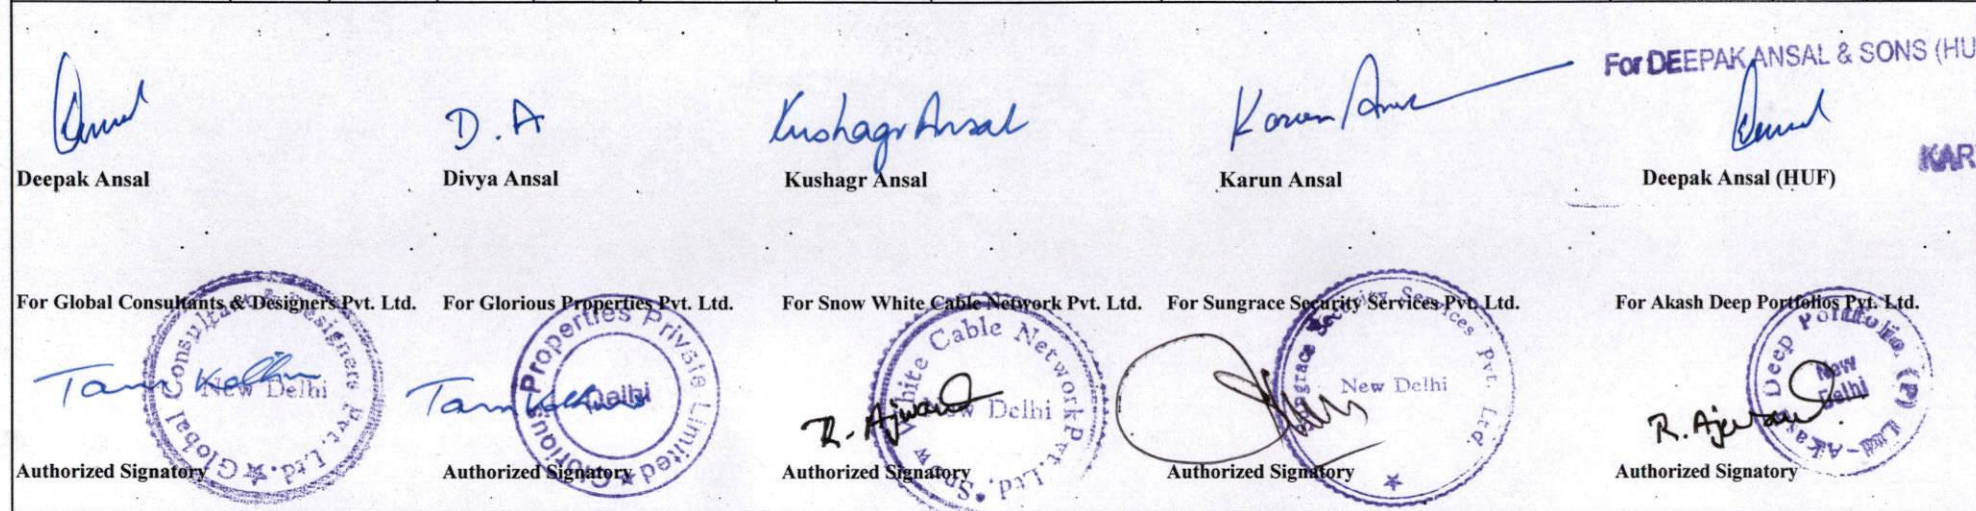 For DEEPAK ANSAL & SONS (HU
D. A
Kushagr Ansal
Karun
KAR
Deepak Ansal
Divya Ansal
Kushagr Ansal
Karun Ansal
Deepak Ansal (HUF)
For Global Consultants & Designers Pvt. Ltd.
For Glorious Properties Pvt. Ltd.
For Snow White Cable Network Pvt. Ltd.
For Sungrace Security Services Pvt. Ltd.
For Akash Deep Portfolios Pvt. Ltd.
Global Consultants & Designers Pvt. Ltd.
New Delhi
Glorious Properties Private Limited
Delhi
Snow White Cable Network Pvt. Ltd.
New Delhi
Sungrace Security Services Pvt. Ltd.
New Delhi
Akash Deep Portfolio (P) Ltd
New
Delhi
R. Ajwani
R. Ajwani
Authorized Signatory
Authorized Signatory
Authorized Signatory
Authorized Signatory
Authorized Signatory